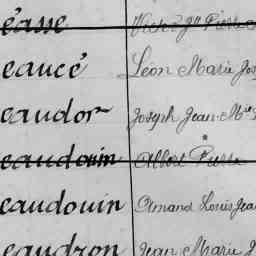 éasse Victor Jn Pierre
eaucé Léon Marie Jos
eaudor Joseph Jean Mie
eaudouin Albert Pierre
eaudouin Armand Louis Jea
eaudron Jean Marie J